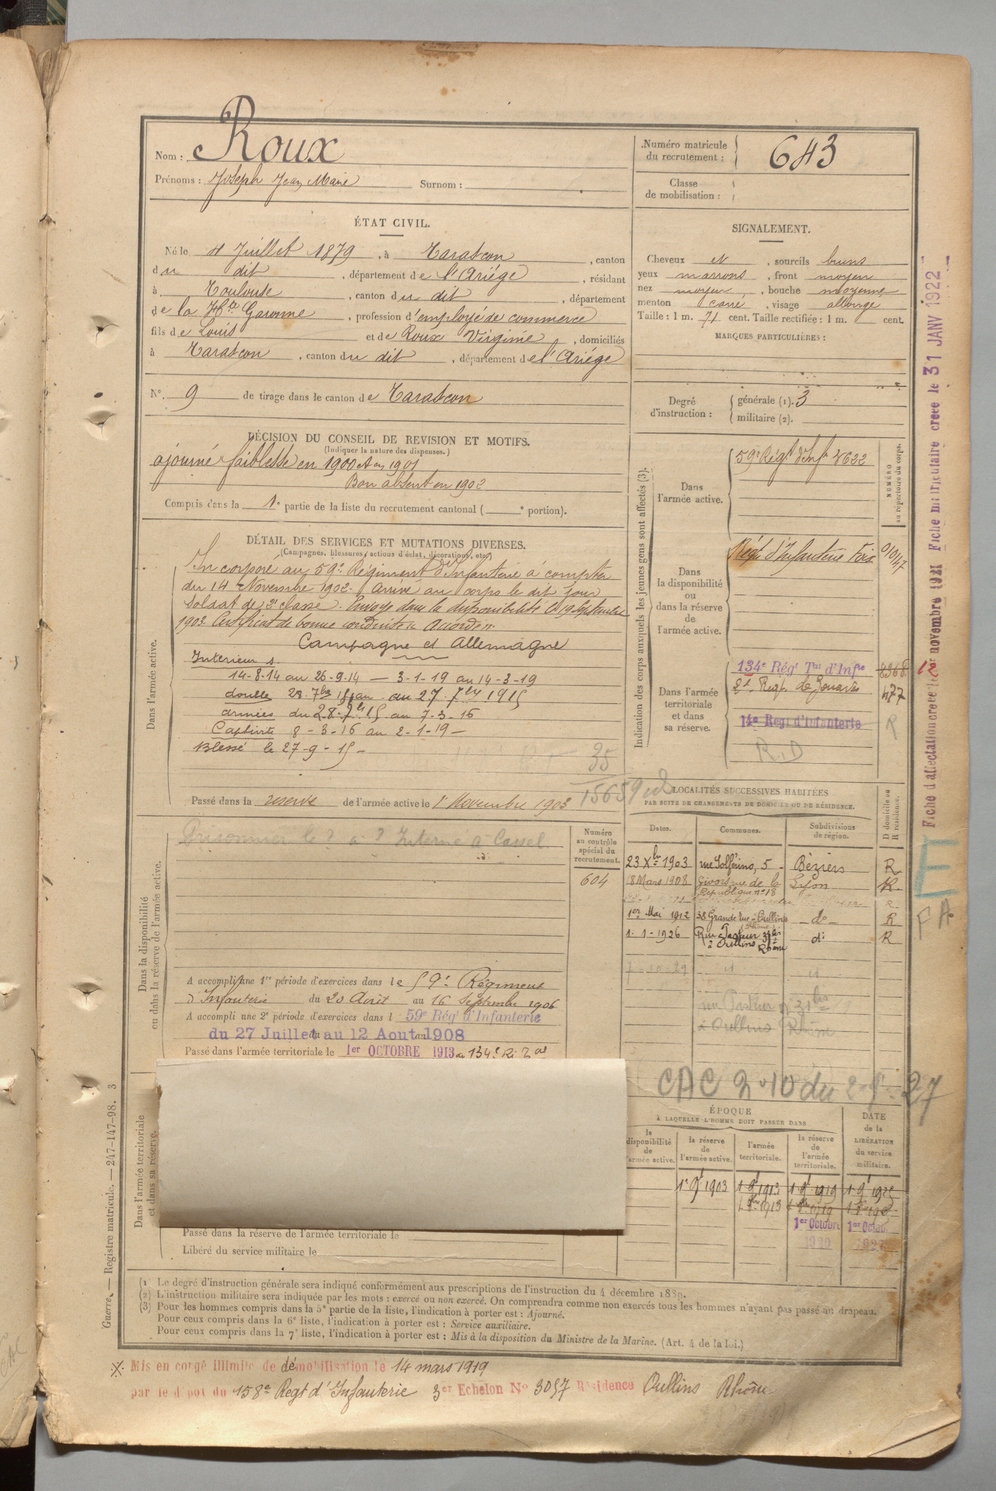 Nom : Roux
Prénoms : Joseph Jean Marie Surnom :
Numéro matricule
du recrutement : 643
Classe
de mobilisation :
ÉTAT CIVIL.
Né le 4 Juillet 1879, à Tarascon, canton
du dit, département de l'Ariége, résidant
à Toulouse, canton du dit, département
de la Hte Garonne, profession d'employé de commerce
fils de Louis et de Roux Virginie, domiciliés
à Tarascon, canton du dit, département de l'Ariége
N°. 9 de tirage dans le canton de Tarascon
SIGNALEMENT.
Cheveux et, sourcils bruns
yeux marrons, front moyen
nez moyen, bouche moyenne
menton carré, visage allongé
Taille : 1 m. 71 cent. Taille rectifiée : 1 m. cent.
MARQUES PARTICULIÈRES :
Degré
d'instruction :
générale (1). 3
militaire (2).
DÉCISION DU CONSEIL DE REVISION ET MOTIFS.
(Indiquer la nature des dispenses.)
ajourné faiblesse en 1900 et en 1901
Bon absent en 1902
Compris dans la 1e partie de la liste du recrutement cantonal ( e portion).
DÉTAIL DES SERVICES ET MUTATIONS DIVERSES.
(Campagnes, blessures, actions d'éclat, décorations, etc.)
Dans l'armée active.
Incorporé au 59e Régiment d'Infanterie à compter
du 14 Novembre 1902. Arrivé au corps le dit jour
Soldat de 2e classe. Envoyé dans la disponibilité le 19 Septembre
1903 Certificat de bonne conduite Accordé
Campagne et Allemagne
Interieur
14-8-14 au 26-9-14 — 3-1-19 au 14-3-19
double au 27 7bre 1915
armées du 28-7bre 15 au 7-3-16
Captivité 8-3-16 au 2-1-19
Blessé le 27-9-15
35
15659
Passé dans la reserve de l'armée active le 1 Novembre 1903
Indication des corps auxquels les jeunes gens sont affectés (3).
NUMÉRO
au répertoire du corps.
Dans
l'armée active.
59e Régt d'Inf 4632
Dans
la disponibilité
ou
dans la réserve
de
l'armée active.
Régt d'Infanterie Foix
Dans l'armée
territoriale
et dans
sa réserve.
134e Régt Ter d'Infie
2e Regt de Zouaves 477
14e Reg. d'infanterie R
R.D
Fiche d'affectation créée le novembre 1921 Fiche matriculaire créée le 31 JANV 1922
Dans la disponibilité
ou dans la réserve de l'armée active.
Prisonnier le ? a ? Interné à Cassel
Numéro
au contrôle
spécial du
recrutement.
604
LOCALITÉS SUCCESSIVES HABITÉES
PAR SUITE DE CHANGEMENTS DE DOMICILE OU DE RÉSIDENCE.
Dates. Communes. Subdivisions
de région. D domicile ou
R résidence.
23 Xbre 1903 rue Solférino, 5 - Béziers R
18 Mars 1908 Givors rue de la
République n° 18 Lyon R
1er Mai 1912 58 Grande rue - Oullins do R
1-1-1926 Rue Pasteur 31 bis
à Oullins Rhône di R
rue Pasteur n° 31 bis
à Oullins Rhône
A accompli une 1re période d'exercices dans le 59e Régiment
d'Infanterie du 20 Avril au 16 Septembre 1906
A accompli une 2e période d'exercices dans l 59e Rég d'Infanterie
du 27 Juillet au 12 Aout 1908
Passé dans l'armée territoriale le 1er OCTOBRE 1913
E
FA
Dans l'armée territoriale
et dans sa réserve.
ÉPOQUE
À LAQUELLE L'HOMME DOIT PASSER DANS
DATE
de la
LIBÉRATION
du service
militaire.
la
disponibilité de
l'armée active. la réserve
de
l'armée active. l'armée
territoriale. la réserve
de
l'armée
territoriale.
1er Octobre
1er Octobre
Passé dans la réserve de l'armée territoriale le
Libéré du service militaire le
(1) Le degré d'instruction générale sera indiqué conformément aux prescriptions de l'instruction du 4 décembre 1889.
(2) L'instruction militaire sera indiquée par les mots : exercé ou non exercé. On comprendra comme non exercés tous les hommes n'ayant pas passé au drapeau.
(3) Pour les hommes compris dans la 5e partie de la liste, l'indication à porter est : Ajourné.
Pour ceux compris dans la 6e liste, l'indication à porter est : Service auxiliaire.
Pour ceux compris dans la 7e liste, l'indication à porter est : Mis à la disposition du Ministre de la Marine. (Art. 4 de la loi.)
Guerre. — Registre matricule. — 247-147-98. 3
Mis en congé Illimité de démobilisation le 14 mars 1919
par le dépot du 158e Regt d'Infanterie 3er Echelon N° 3057 Résidence Oullins Rhône